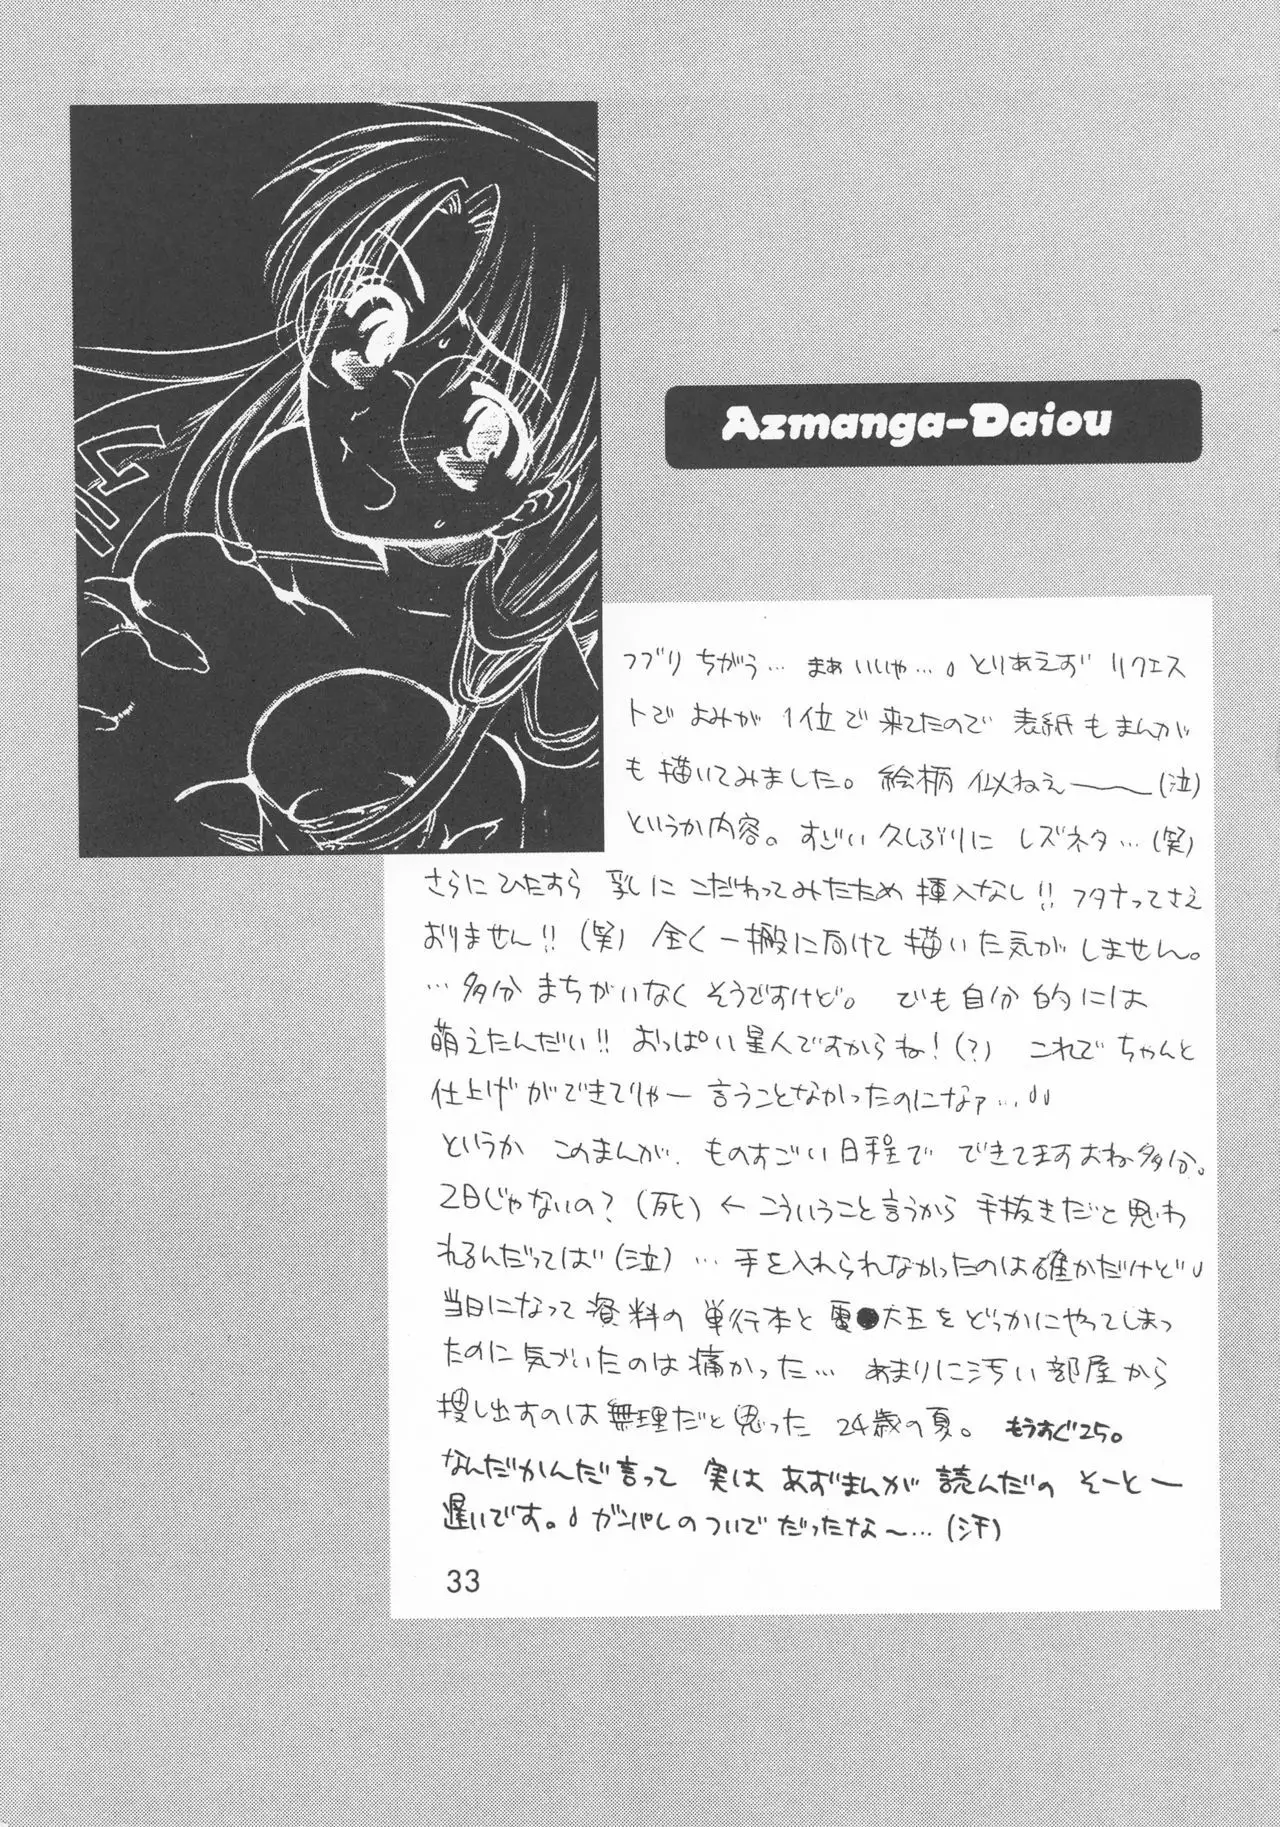 Azmanga-Daiou
フブリ ちがう… まぁいいや…。とりあえず リクエス
トで よみが 1位で来てたので 表紙もまんが
も描いてみました。絵柄 似ねえ――(泣)
というか内容。すごい久しぶりに レズネタ…(笑)
さらにひたすら 乳に こだわってみたため 挿入なし!! フタナってさえ
おりません!!(笑) 全く一般に向けて描いた気がしません。
…多分 まちがいなく そうですけど。 でも自分的には
萌えたんだい!! おっぱい星人ですからね!(?) これで ちゃんと
仕上げができてりゃー 言うことなかったのになァ…
というか このまんが、ものすごい日程で できてますよね多分。
2日じゃないの?(死) ← こういうこと言うから 手抜きだと思わ
れるんだってば(泣) … 手を入れられなかったのは確かだけど
当日になって 資料の 単行本と 電●大王を どっかにやってしまっ
たのに気づいたのは痛かった… あまりに汚い部屋から
捜し出すのは無理だと思った 24歳の夏。 もうすぐ25。
なんだかんだ言って 実は あずまんが 読んだの そーとー
遅いです。ガンパレのついでだったな〜…(汗)
33